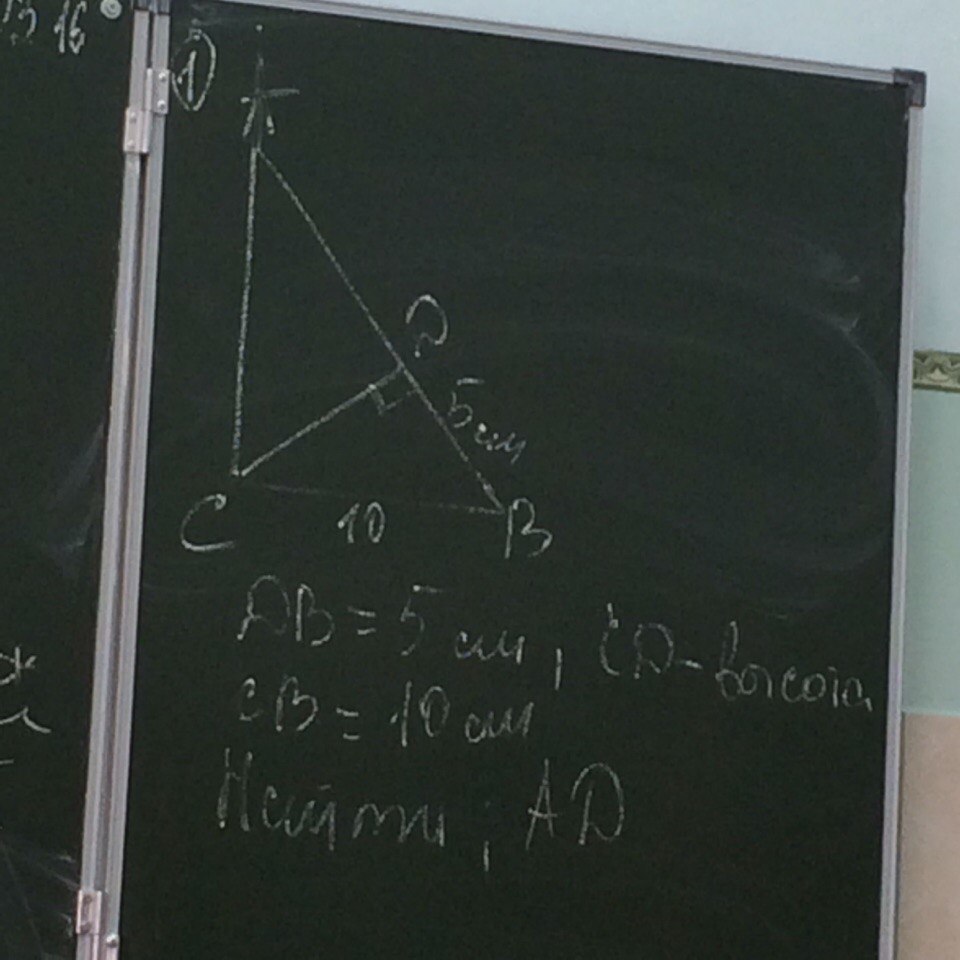 16
1
A
D
5 см
C 10 B
DB = 5 см, CD - высота
CB = 10 см
Найти: AD